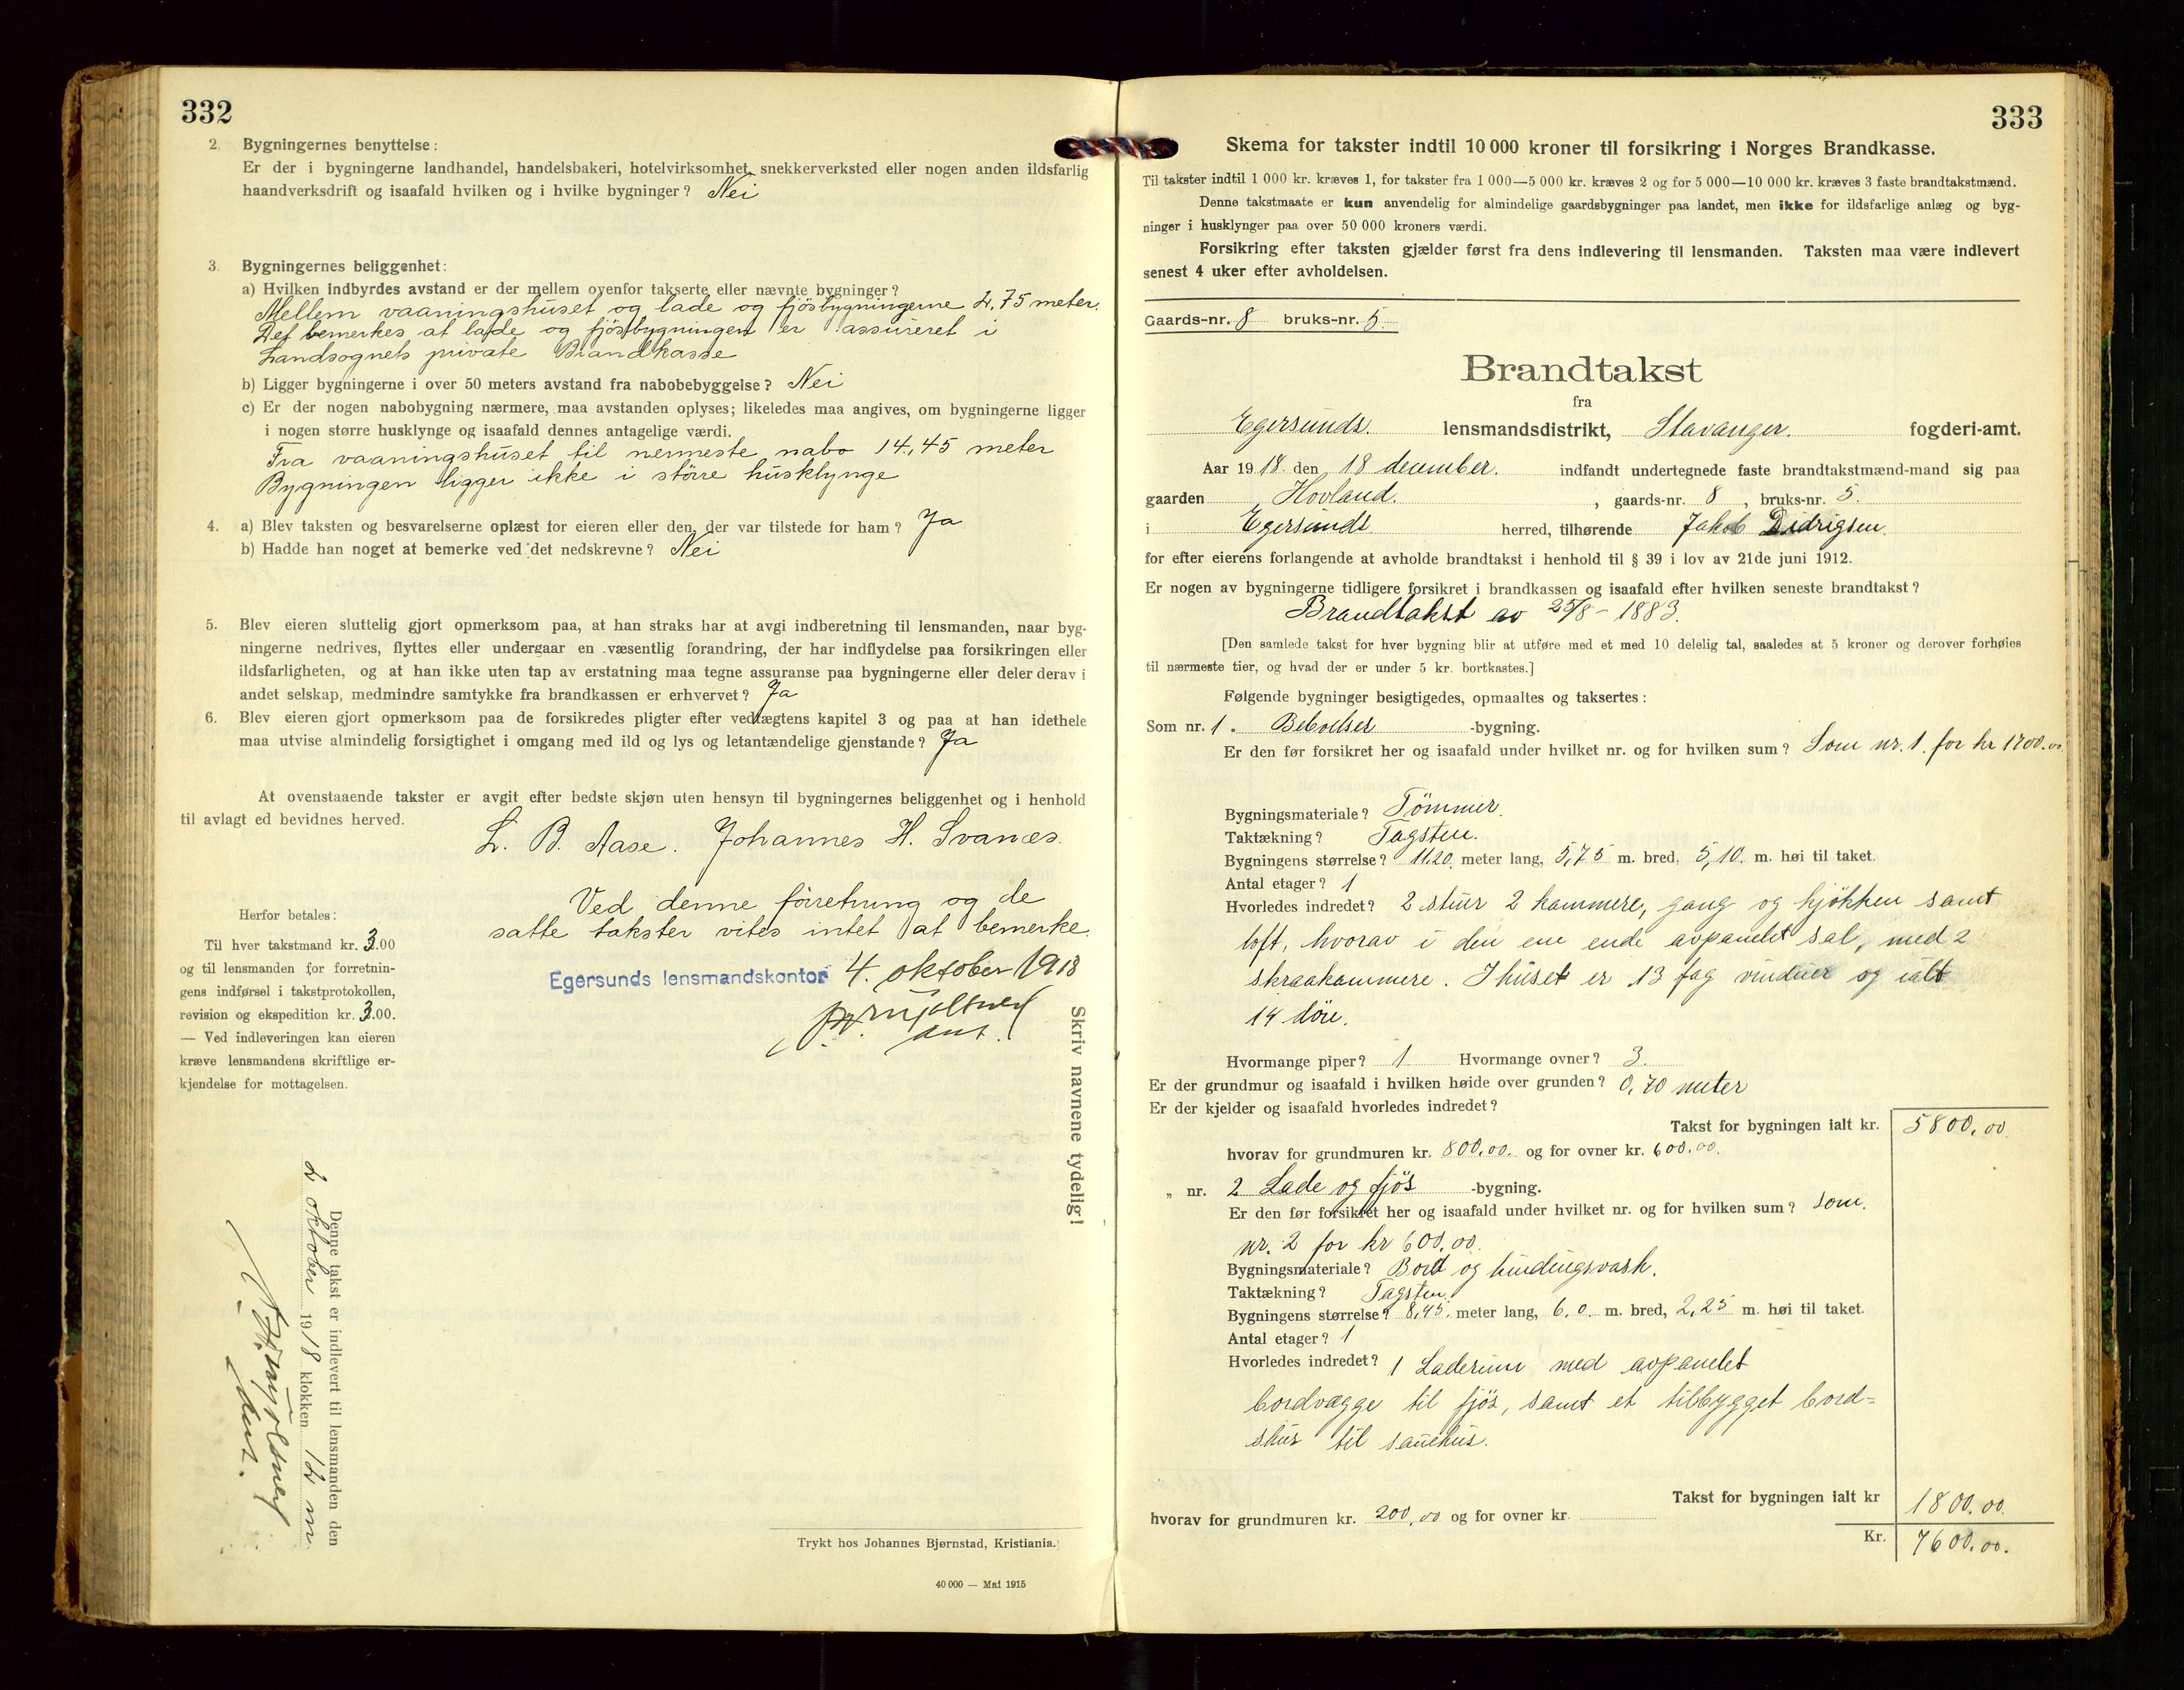 332
2. Bygningernes benyttelse:
Er der i bygningerne landhandel, handelsbakeri, hotelvirksomhet, snekkerverksted eller nogen anden ildsfarlig
haandverksdrift og isaafald hvilken og i hvilke bygninger? Nei
3. Bygningernes beliggenhet:
a) Hvilken indbyrdes avstand er der mellem ovenfor takserte eller nævnte bygninger?
Mellem vaaningshuset og lade og fjösbygningerne 2.75 meter.
Det bemerkes at lade og fjösbygningen er assureret i
Landsognets private Brandkasse
b) Ligger bygningerne i over 50 meters avstand fra nabobebyggelse? Nei
c) Er der nogen nabobygning nærmere, maa avstanden oplyses; likeledes maa angives, om bygningerne ligger
i nogen større husklynge og isaafald dennes antagelige værdi.
Fra vaaningshuset til nermeste nabo 14,45 meter
Bygningen ligger ikke i större husklynge
4. a) Blev taksten og besvarelserne oplæst for eieren eller den, der var tilstede for ham? Ja
b) Hadde han noget at bemerke ved det nedskrevne? Nei
5. Blev eieren sluttelig gjort opmerksom paa, at han straks har at avgi indberetning til lensmanden, naar byg-
ningerne nedrives, flyttes eller undergaar en væsentlig forandring, der har indflydelse paa forsikringen eller
ildsfarligheten, og at han ikke uten tap av erstatning maa tegne assuranse paa bygningerne eller deler derav i
andet selskap, medmindre samtykke fra brandkassen er erhvervet? Ja
6. Blev eieren gjort opmerksom paa de forsikredes pligter efter vedtægtens kapitel 3 og paa at han idethele
maa utvise almindelig forsigtighet i omgang med ild og lys og letantændelige gjenstande? Ja
At ovenstaaende takster er avgit efter bedste skjøn uten hensyn til bygningernes beliggenhet og i henhold
til avlagt ed bevidnes herved.
L. B. Aase. Johannes H. Svanes.
Ved denne forretning og de
satte takster vites intet at bemerke.
Egersunds lensmandskontor 4. oktober 1918
Herfor betales:
Til hver takstmand kr. 3.00
og til lensmanden for forretnin-
gens indførsel i takstprotokollen,
revision og ekspedition kr. 3.00.
— Ved indleveringen kan eieren
kræve lensmandens skriftlige er-
kjendelse for mottagelsen.
Skriv navnene tydelig!
Denne takst er indlevert til lensmanden den
2 oktober 1918 klokken 12 m
Trykt hos Johannes Bjørnstad, Kristiania.
40 000 — Mai 1915
333
Skema for takster indtil 10 000 kroner til forsikring i Norges Brandkasse.
Til takster indtil 1 000 kr. kræves 1, for takster fra 1 000—5 000 kr. kræves 2 og for 5 000—10 000 kr. kræves 3 faste brandtakstmænd.
Denne takstmaate er kun anvendelig for almindelige gaardsbygninger paa landet, men ikke for ildsfarlige anlæg og byg-
ninger i husklynger paa over 50 000 kroners værdi.
Forsikring efter taksten gjælder først fra dens indlevering til lensmanden. Taksten maa være indlevert
senest 4 uker efter avholdelsen.
Gaards-nr. 8 bruks-nr. 5.
Brandtakst
fra
Egersunds. lensmandsdistrikt, Stavanger. fogderi-amt.
Aar 1918. den 18 december. indfandt undertegnede faste brandtakstmænd-mand sig paa
gaarden Hovland. , gaards-nr. 8 , bruks-nr. 5.
i Egersunds herred, tilhørende Jakob Didrigsen.
for efter eierens forlangende at avholde brandtakst i henhold til § 39 i lov av 21de juni 1912.
Er nogen av bygningerne tidligere forsikret i brandkassen og isaafald efter hvilken seneste brandtakst?
Brandtakst av 25/8 - 1883.
[Den samlede takst for hver bygning blir at utføre med et med 10 delelig tal, saaledes at 5 kroner og derover forhøies
til nærmeste tier, og hvad der er under 5 kr. bortkastes.]
Følgende bygninger besigtigedes, opmaaltes og taksertes:
Som nr. 1. Beboelses -bygning.
Er den før forsikret her og isaafald under hvilket nr. og for hvilken sum? Som nr. 1. for kr 1700.00
Bygningsmateriale? Tömmer.
Taktækning? Tagsten.
Bygningens størrelse? 11,20 meter lang, 5,75 m. bred, 5,10. m. høi til taket.
Antal etager? 1
Hvorledes indredet? 2 stuer 2 kammere, gang og kjökken samt
loft, hvorav i den ene ende avpanelet sal, med 2
skraakammere. I huset er 13 fag vinduer og ialt
14 döre.
Hvormange piper? 1 Hvormange ovner? 3.
Er der grundmur og isaafald i hvilken høide over grunden? 0,70 meter
Er der kjelder og isaafald hvorledes indredet?
Takst for bygningen ialt kr. 5800,00.
hvorav for grundmuren kr. 800,00. og for ovner kr. 600.00.
„ nr. 2 Lade og fjös -bygning.
Er den før forsikret her og isaafald under hvilket nr. og for hvilken sum? som.
nr. 2 for kr 600,00.
Bygningsmateriale? Bord og bindingsverk.
Taktækning? Tagsten.
Bygningens størrelse? 8,45. meter lang, 6,0. m. bred, 2,25 m. høi til taket.
Antal etager? 1
Hvorledes indredet? 1 Laderum med avpanelet
bordvægge til fjös, samt et tilbygget bord-
skur til sauehus.
Takst for bygningen ialt kr 1800.00.
hvorav for grundmuren kr. 200,00 og for ovner kr.
Kr. 7600.00.